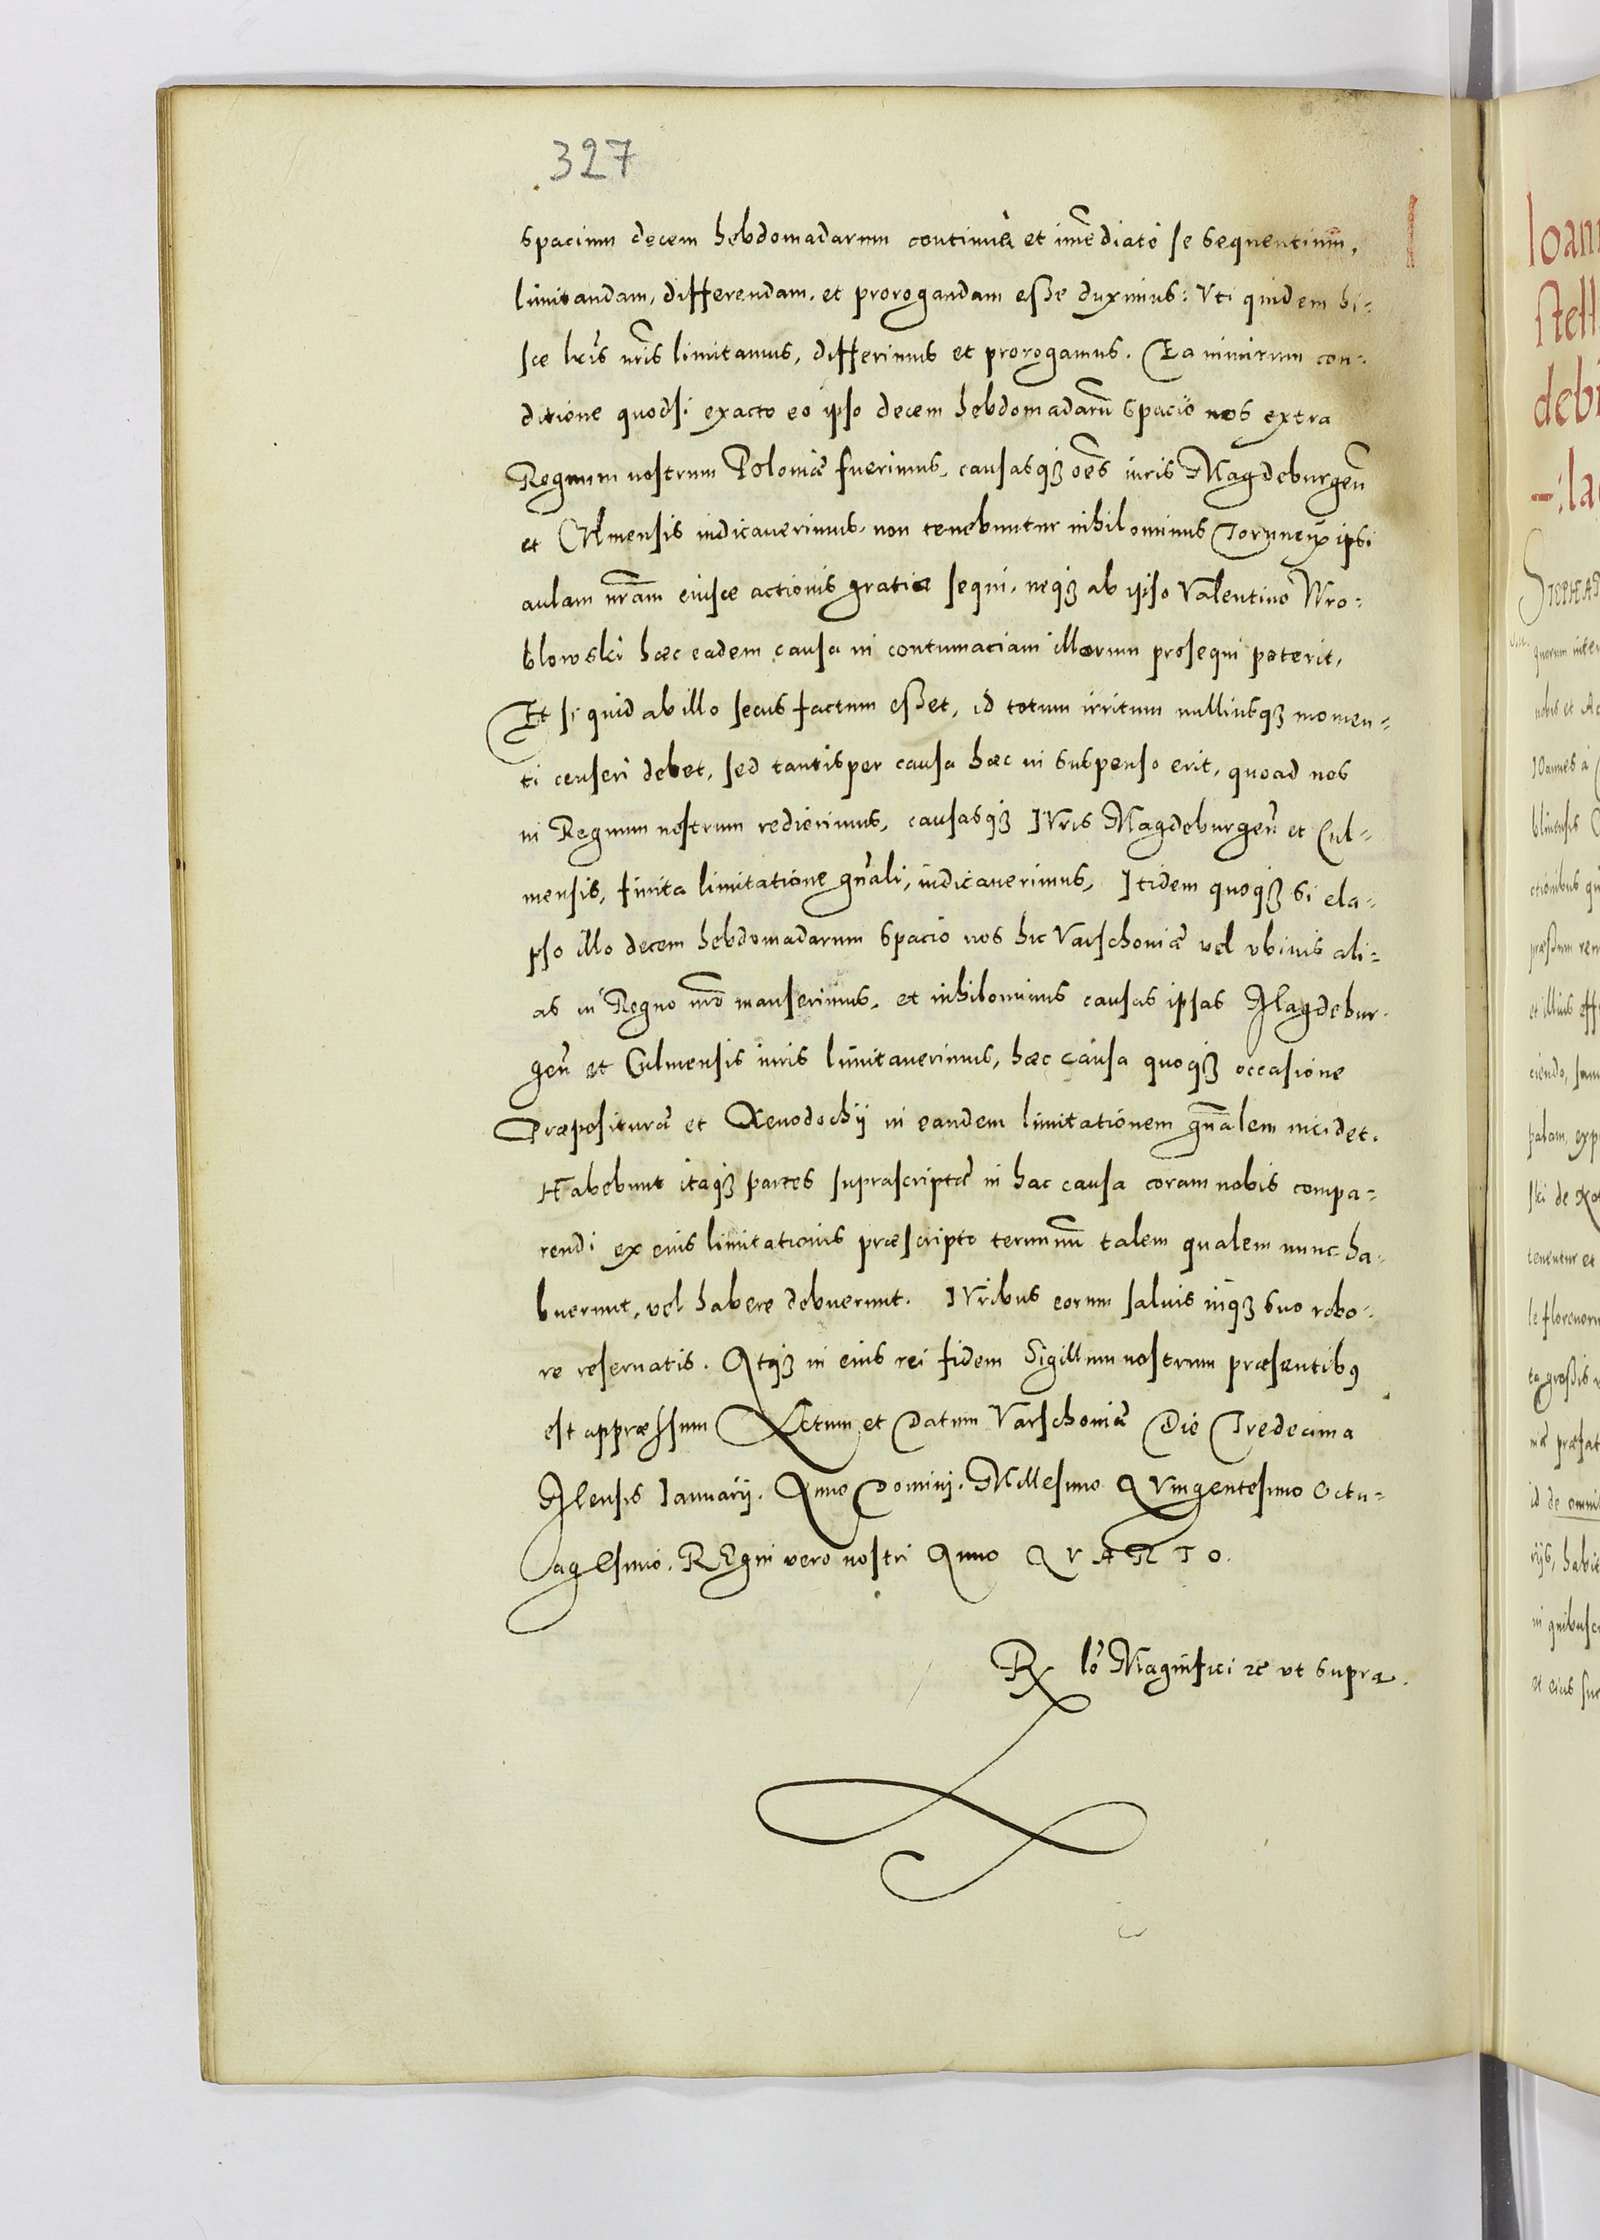 327
spacium decem hebdomadarum continuè et imẽdiatè se sequentium,
limitandam, differendam, et prorogandam esse duximus: Vti quidem hi-
sce lrĩs nrĩs limitamus, differimus et prorogamus. Ea nimirum con-
ditione quodsi exacto eo ipso decem hebdomadarũ spacio nos extra
Regnum nostrum Poloniæ fuerimus, causasqȝ oẽs iuris Magdeburgeñ
et Culmensis iudicauerimus, non tenebuntur nihilominus Toruneñ ipsi
aulam nrãm eiusce actionis gratia sequi, neqȝ ab ipso Valentino Wro-
blowski hæc eadem causa in contumaciam illorum prosequi poterit,
Et si quid ab illo secus factum esset, id totum irritum nulliusqȝ momen-
ti censeri debet, sed tantisper causa hæc in suspenso erit, quoad nos
in Regnum nostrum redierimus, causasqȝ IVris Magdeburgeñ et Cul-
mensis, finita limitatione gñali, iudicauerimus, Itidem quoqȝ si ela-
pso illo decem hebdomadarum spacio nos hic Varschouiæ vel vbiuis ali-
as in Regno nrõ manserimus, et nihilominus causas ipsas Magdebur-
geñ et Culmensis iuris limitauerimus, hæc causa quoqȝ occasione
Præposituræ et Xenodochij in eandem limitationem gñalem incidet.
Habebunt itaqȝ partes suprascriptæ in hac causa coram nobis compa-
rendi ex eius limitationis præscripto terminũ talem qualem nunc ha-
buerunt, vel habere debuerunt. IVribus eorum saluis inqȝ suo robo-
re reseruatis. Atqȝ in eius rei fidem Sigillum nostrum præsentibꝰ
est appræssum Actum et Datum Varschouiæ Die Tredecima
Mensis Ianuarij. Anno Domini. Millesimo QVingentesimo Octu-
agEsimo. REgni vero nostri Anno QVARTO.
Rx lõ Magnifici ꝛc vt supra.
Ioan
stell
debi
STEPHA
quorum inter
nobis et Ac
IOannes à
blinensis
ctionibus
præssum
et illius eff
ciendo,
palam, exp
ski de
tenentur et
le florenor
ta grossis
præfat
id de omni
rijs, habit
in quibusc
et eius suc